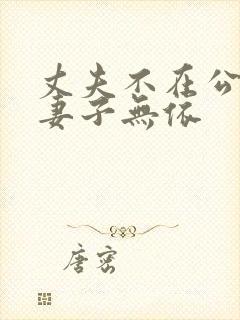 丈夫不在公
妻子無依
唐密